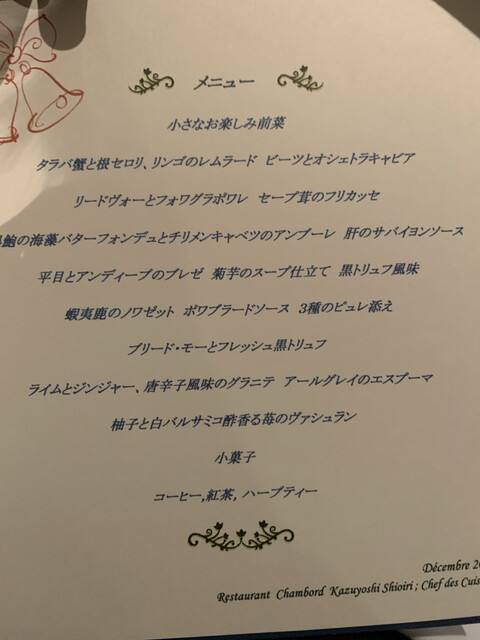 メニュー
小さなお楽しみ前菜
タラバ蟹と根セロリ、リンゴのレムラード ビーツとオシェトラキャビア
リードヴォーとフォワグラポワレ セープ茸のフリカッセ
鮑の海藻バターフォンデュとチリメンキャベツのアンブーレ 肝のサバイヨンソース
平目とアンディーブのブレゼ 菊芋のスープ仕立て 黒トリュフ風味
蝦夷鹿のノワゼット ポワブラードソース 3種のピュレ添え
ブリード・モーとフレッシュ黒トリュフ
ライムとジンジャー、唐辛子風味のグラニテ アールグレイのエスプーマ
柚子と白バルサミコ酢香る苺のヴァシュラン
小菓子
コーヒー,紅茶, ハーブティー
Décembre
Restaurant Chambord Kazuyoshi Shioiri ; Chef des